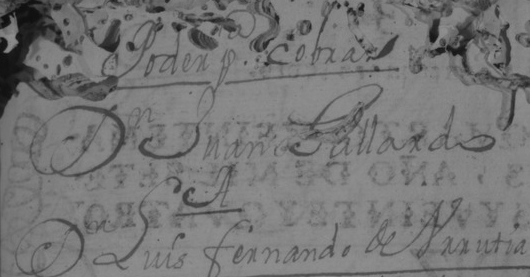 Poder pa. cobrar
Dn Juan Gallardo
A
Dn Luis fernando de Arrutia